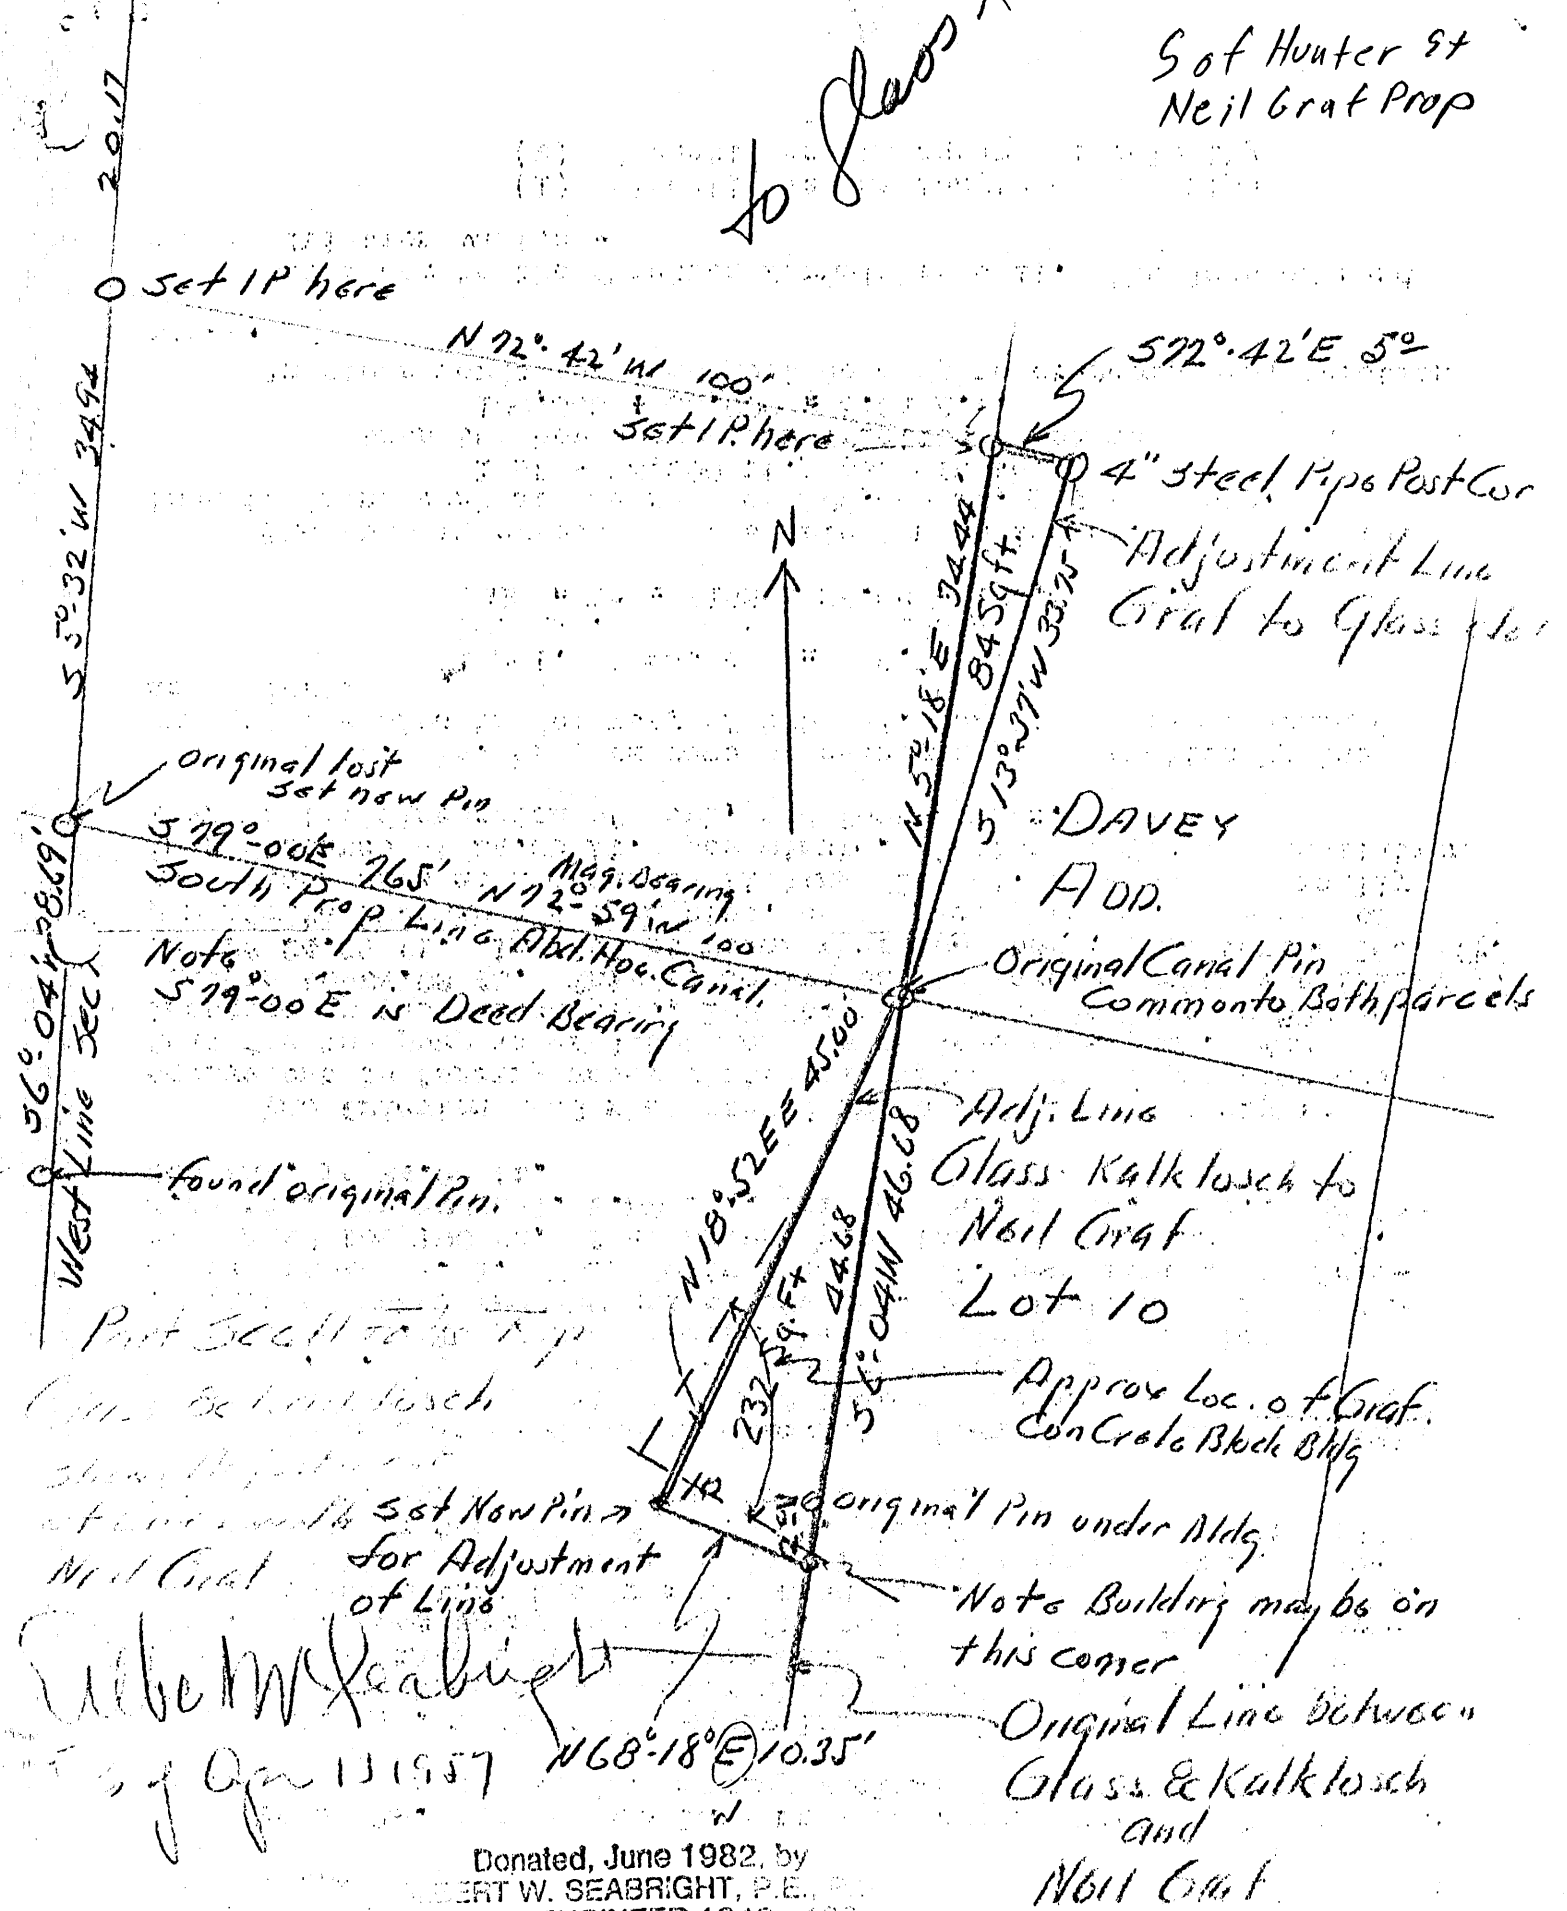 S of Hunter St
Neil Graf Prop
to Glass
20.17
set IP here
N 72°-42' W 100'
S72°-42'E 5°
set I.P. here
4" Steel Pipe Post Cor
Adjustment Line
Graf to Glass
S 5°-32' W 34.94
N
N 5°-18' E 34.44'
84 Sq ft.
S 13°-37' W 33.75
original lost
set new Pin
S 79°-00E 765'
Mag. Bearing
N 72°-59' W 100
South Prop Line Abd. Hoc. Canal.
DAVEY
ADD.
Note
S 79°-00 E is Deed Bearing
Original Canal Pin
Common to Both parcels
S6°-04W 28.69'
West Line Sec
found original Pin.
N 18°-52E E 45.00
Adj. Line
Glass Kalklosch to
Neil Graf
Lot 10
232 Sq. Ft
44.68
S 6°-04W 46.68
Part Sec 11
Approx Loc. of Graf.
Concrete Block Bldg
Set New Pin
for Adjustment
of Line
original Pin under Bldg.
Neil Graf
Note Building may be on
this corner
Original Line between
Glass & Kalklosch
and
Neil Graf
Seabright
of Apr 1957
N68°-18° E 10.35'
W
Donated, June 1982, by
ERT W. SEABRIGHT, P.E.,